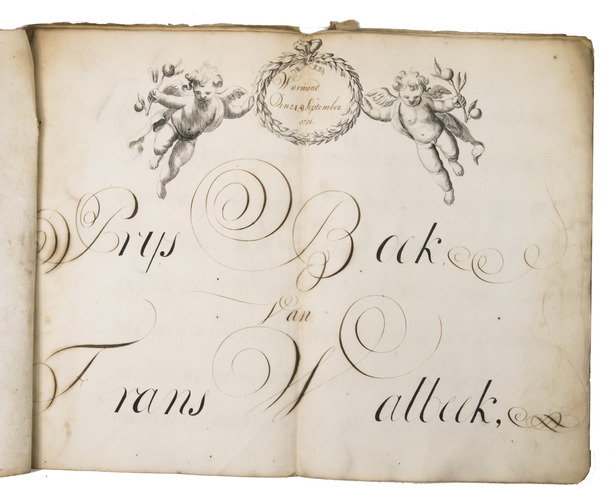 Warmont
Den 21 September
1716.
Prijs Boek
Van
Frans Walbeek,